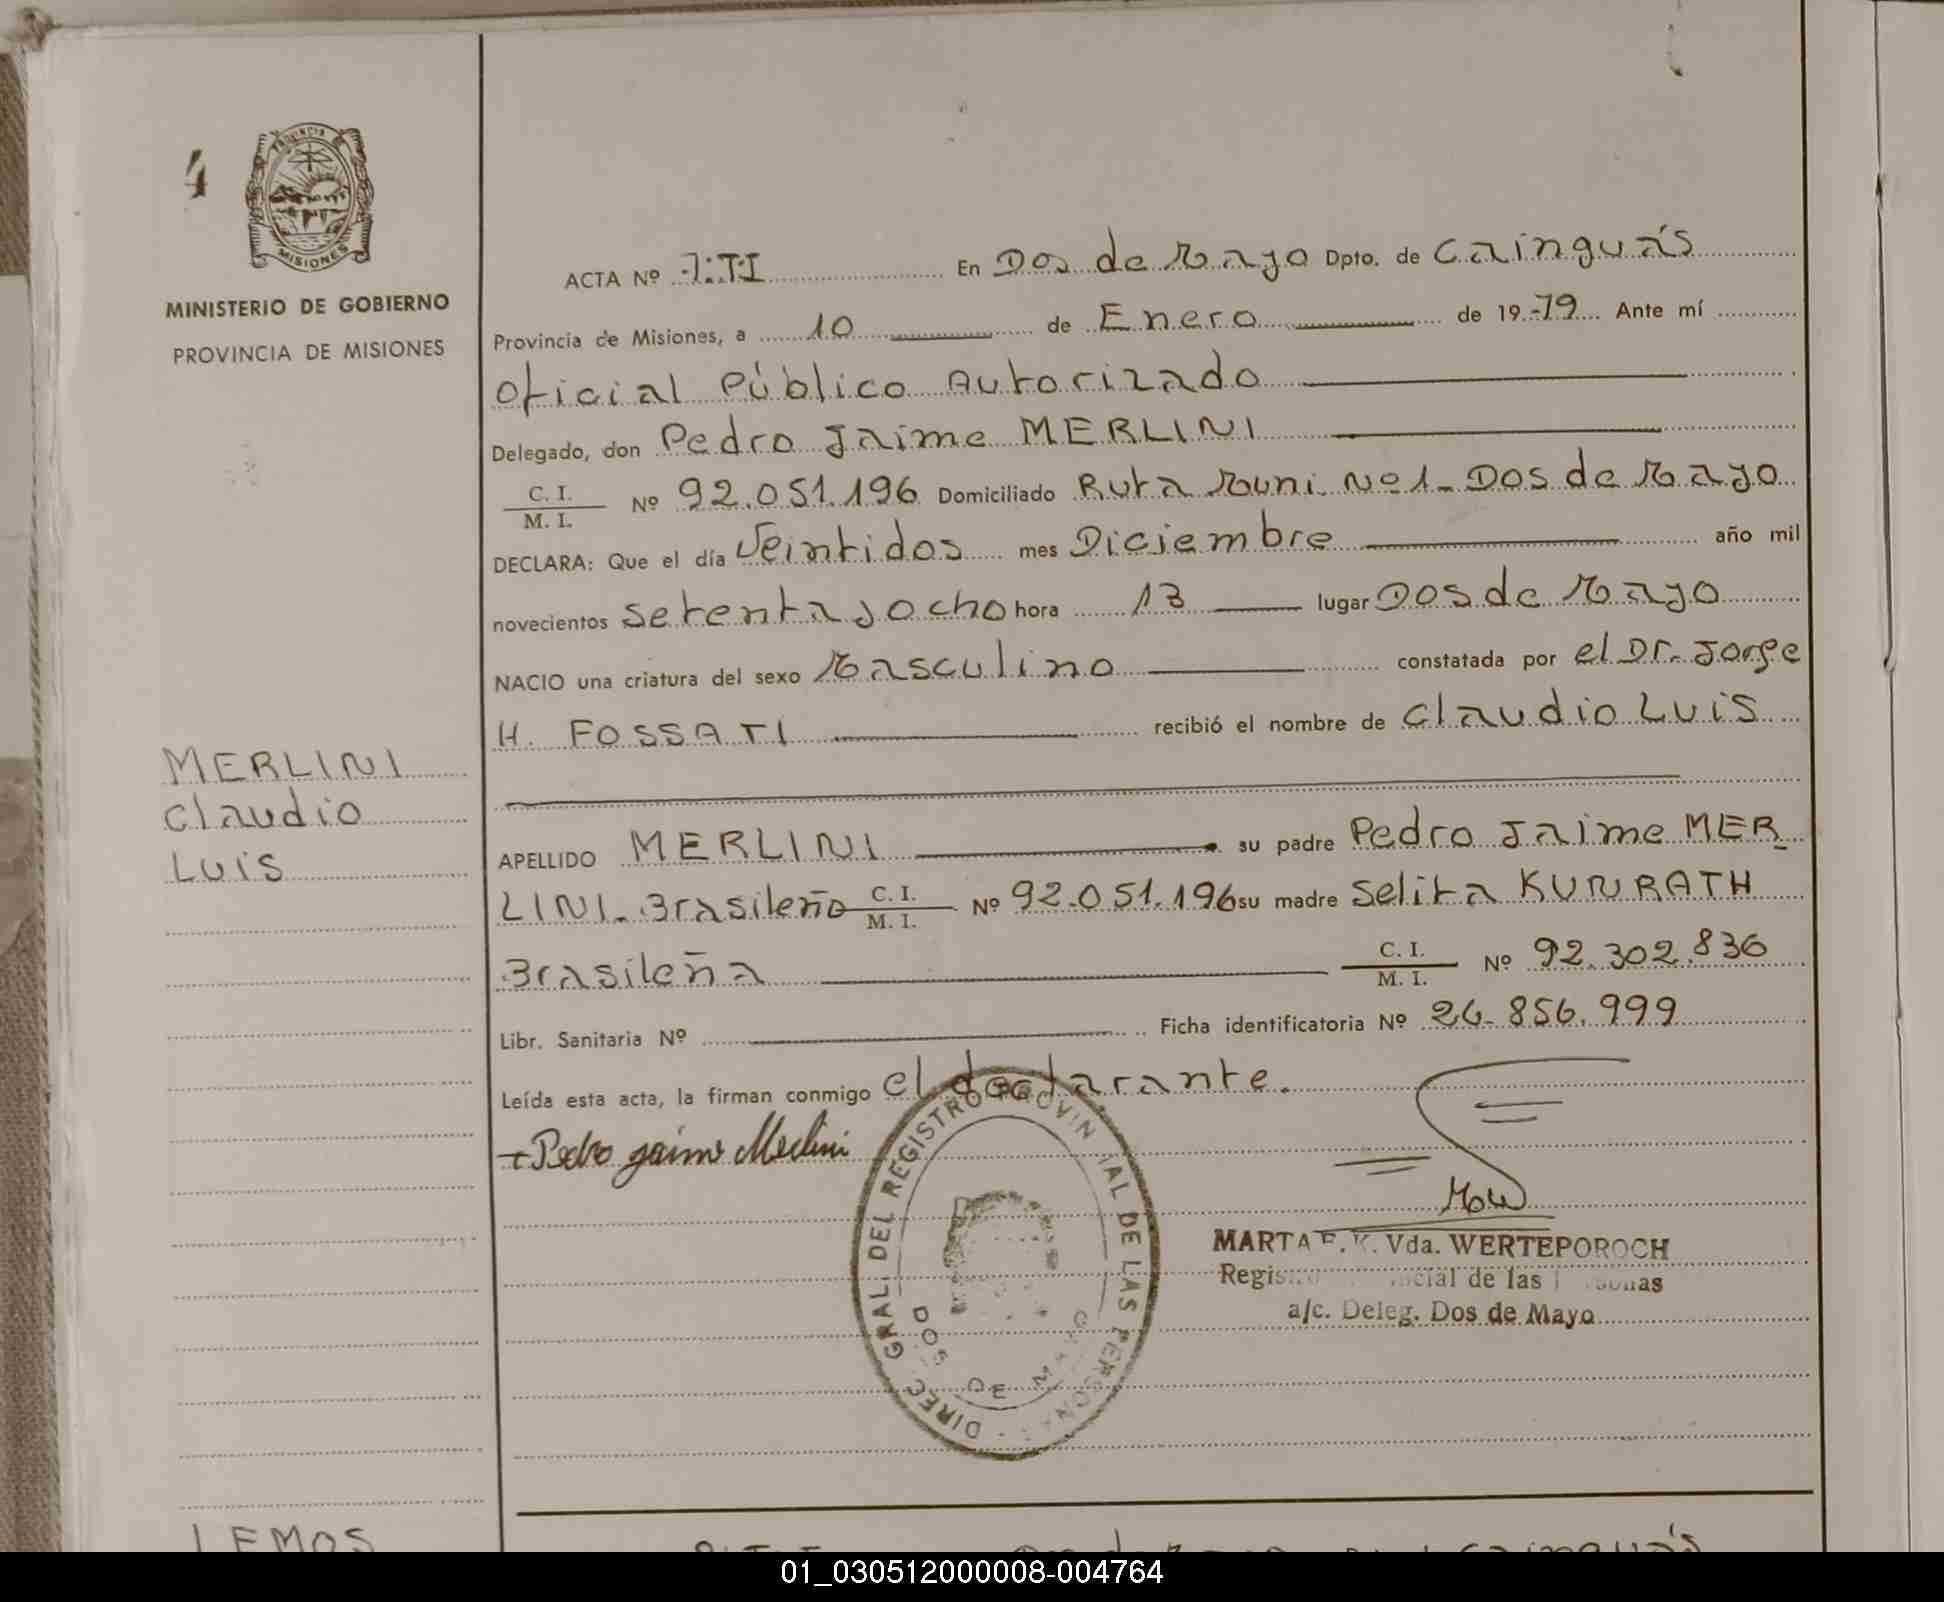 4
PROVINCIA
MISIONES
MINISTERIO DE GOBIERNO
PROVINCIA DE MISIONES
MERLINI
Claudio
Luis
ACTA Nº 7:TI En Dos de Mayo Dpto. de Cainguás
Provincia de Misiones, a 10 de Enero de 19-79 Ante mí
Oficial Público Autorizado
Delegado, don Pedro Jaime MERLINI
C. I.
M. I. Nº 92.051.196 Domiciliado Ruta Muni. Nº1-Dos de Mayo
DECLARA: Que el día Veintidos mes Diciembre año mil
novecientos setenta y ocho hora 13 lugar Dos de Mayo
NACIO una criatura del sexo Masculino constatada por el Dr. Jorge
H. FOSSATI recibió el nombre de Claudio Luis
APELLIDO MERLINI su padre Pedro Jaime MER
LINI-Brasileño C. I. M. I. Nº 92.051.196 su madre Selita KUNRATH
Brasileña C. I. M. I. Nº 92.302.836
Libr. Sanitaria Nº Ficha identificatoria Nº 26-856.999
Leída esta acta, la firman conmigo el declarante.
Pedro Jaime Merlini
DIREC. GRAL. DEL REGISTRO PROVINCIAL DE LAS PERSONAS
DOS DE MAYO
MARTA E. K. Vda. WERTEPOROCH
Registro Provincial de las Personas
a/c. Deleg. Dos de Mayo
LEMOS
01_030512000008-004764